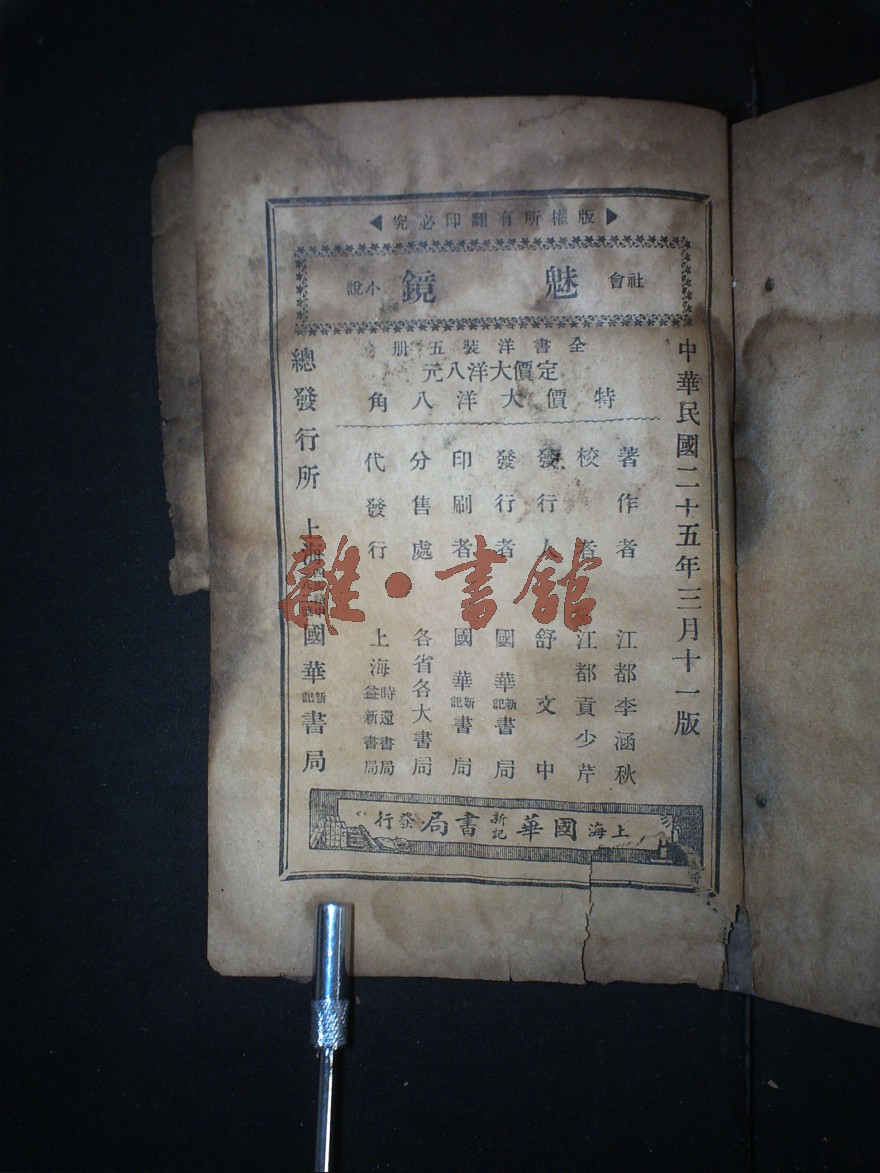 版權所有翻印必究
社會 魅鏡 小說
中華民國二十五年三月十一版
全書洋裝五册
定價大洋八元
特價大洋八角
著作者 江都李涵秋
校者 江都貢少芹
發行人 舒文中
發行者 國華新記書局
印刷者 國華新記書局
分售處 各省各大書局
代發行 上海時還書局 益新書局
總發行所 上海 國華新記書局
上海國華新記書局發行
雜·書館